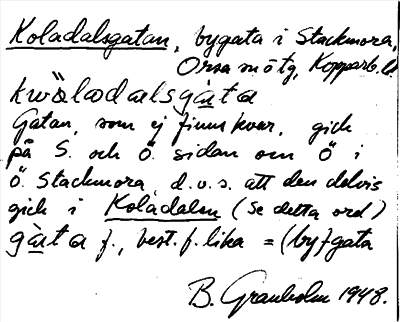 Koladalsgatan, bygata i Stackmora,
Orsa sn o tg, Kopparb. l.
kwɔ̈ladalsgàta
Gatan, som ej finns kvar, gick
på S. och Ö. sidan om Ö i
Ö. Stackmora, d.v.s. att den delvis
gick i Koladalen (se detta ord)
gàta f., best. f. lika = (by)gata
B. Granholm 1948.